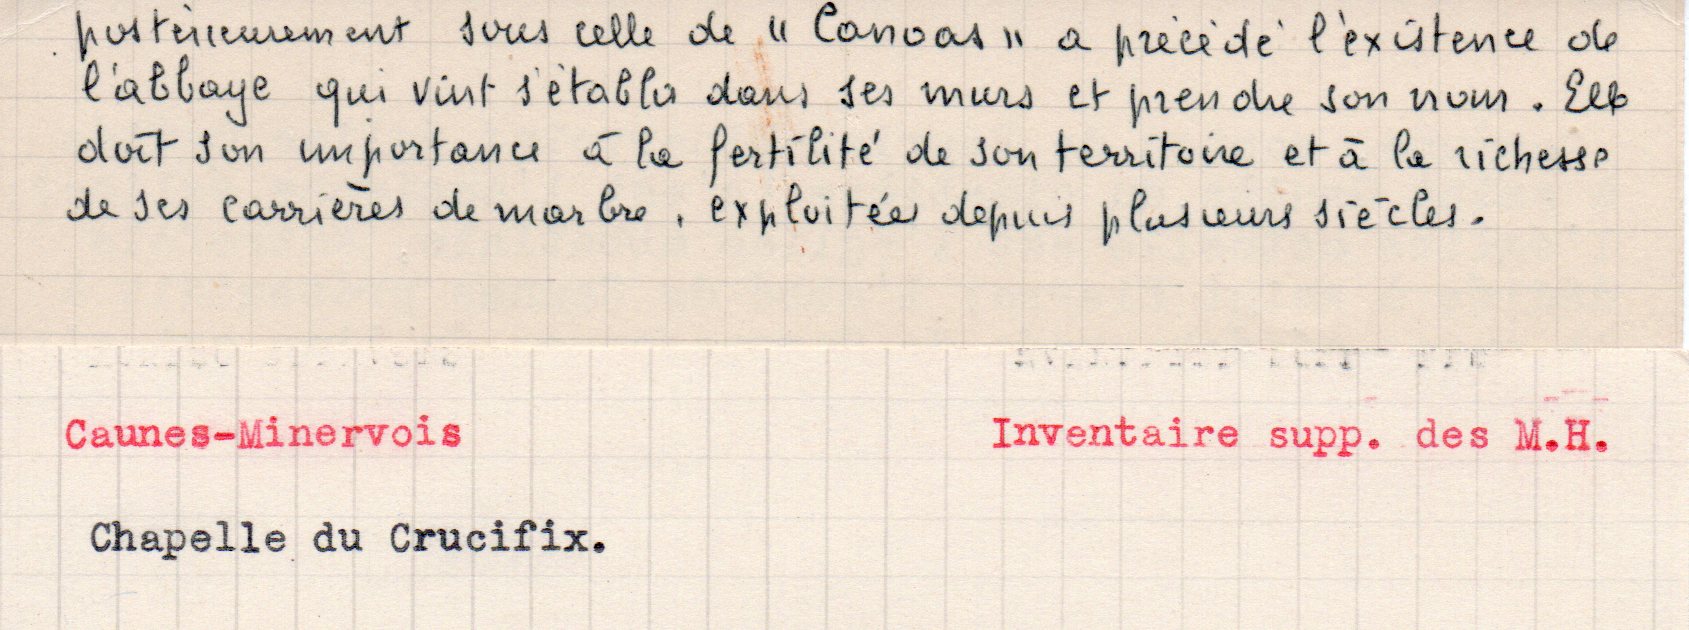 postérieurement sous celle de " Canoas " a précédé l'éxistence de
l'abbaye qui vint s'établir dans ses murs et prendre son nom. Elle
doit son importance à la fertilité de son territoire et à la richesse
de ses carrières de marbre, exploitées depuis plusieurs siècles.
Caunes-Minervois Inventaire supp. des M.H.
Chapelle du Crucifix.